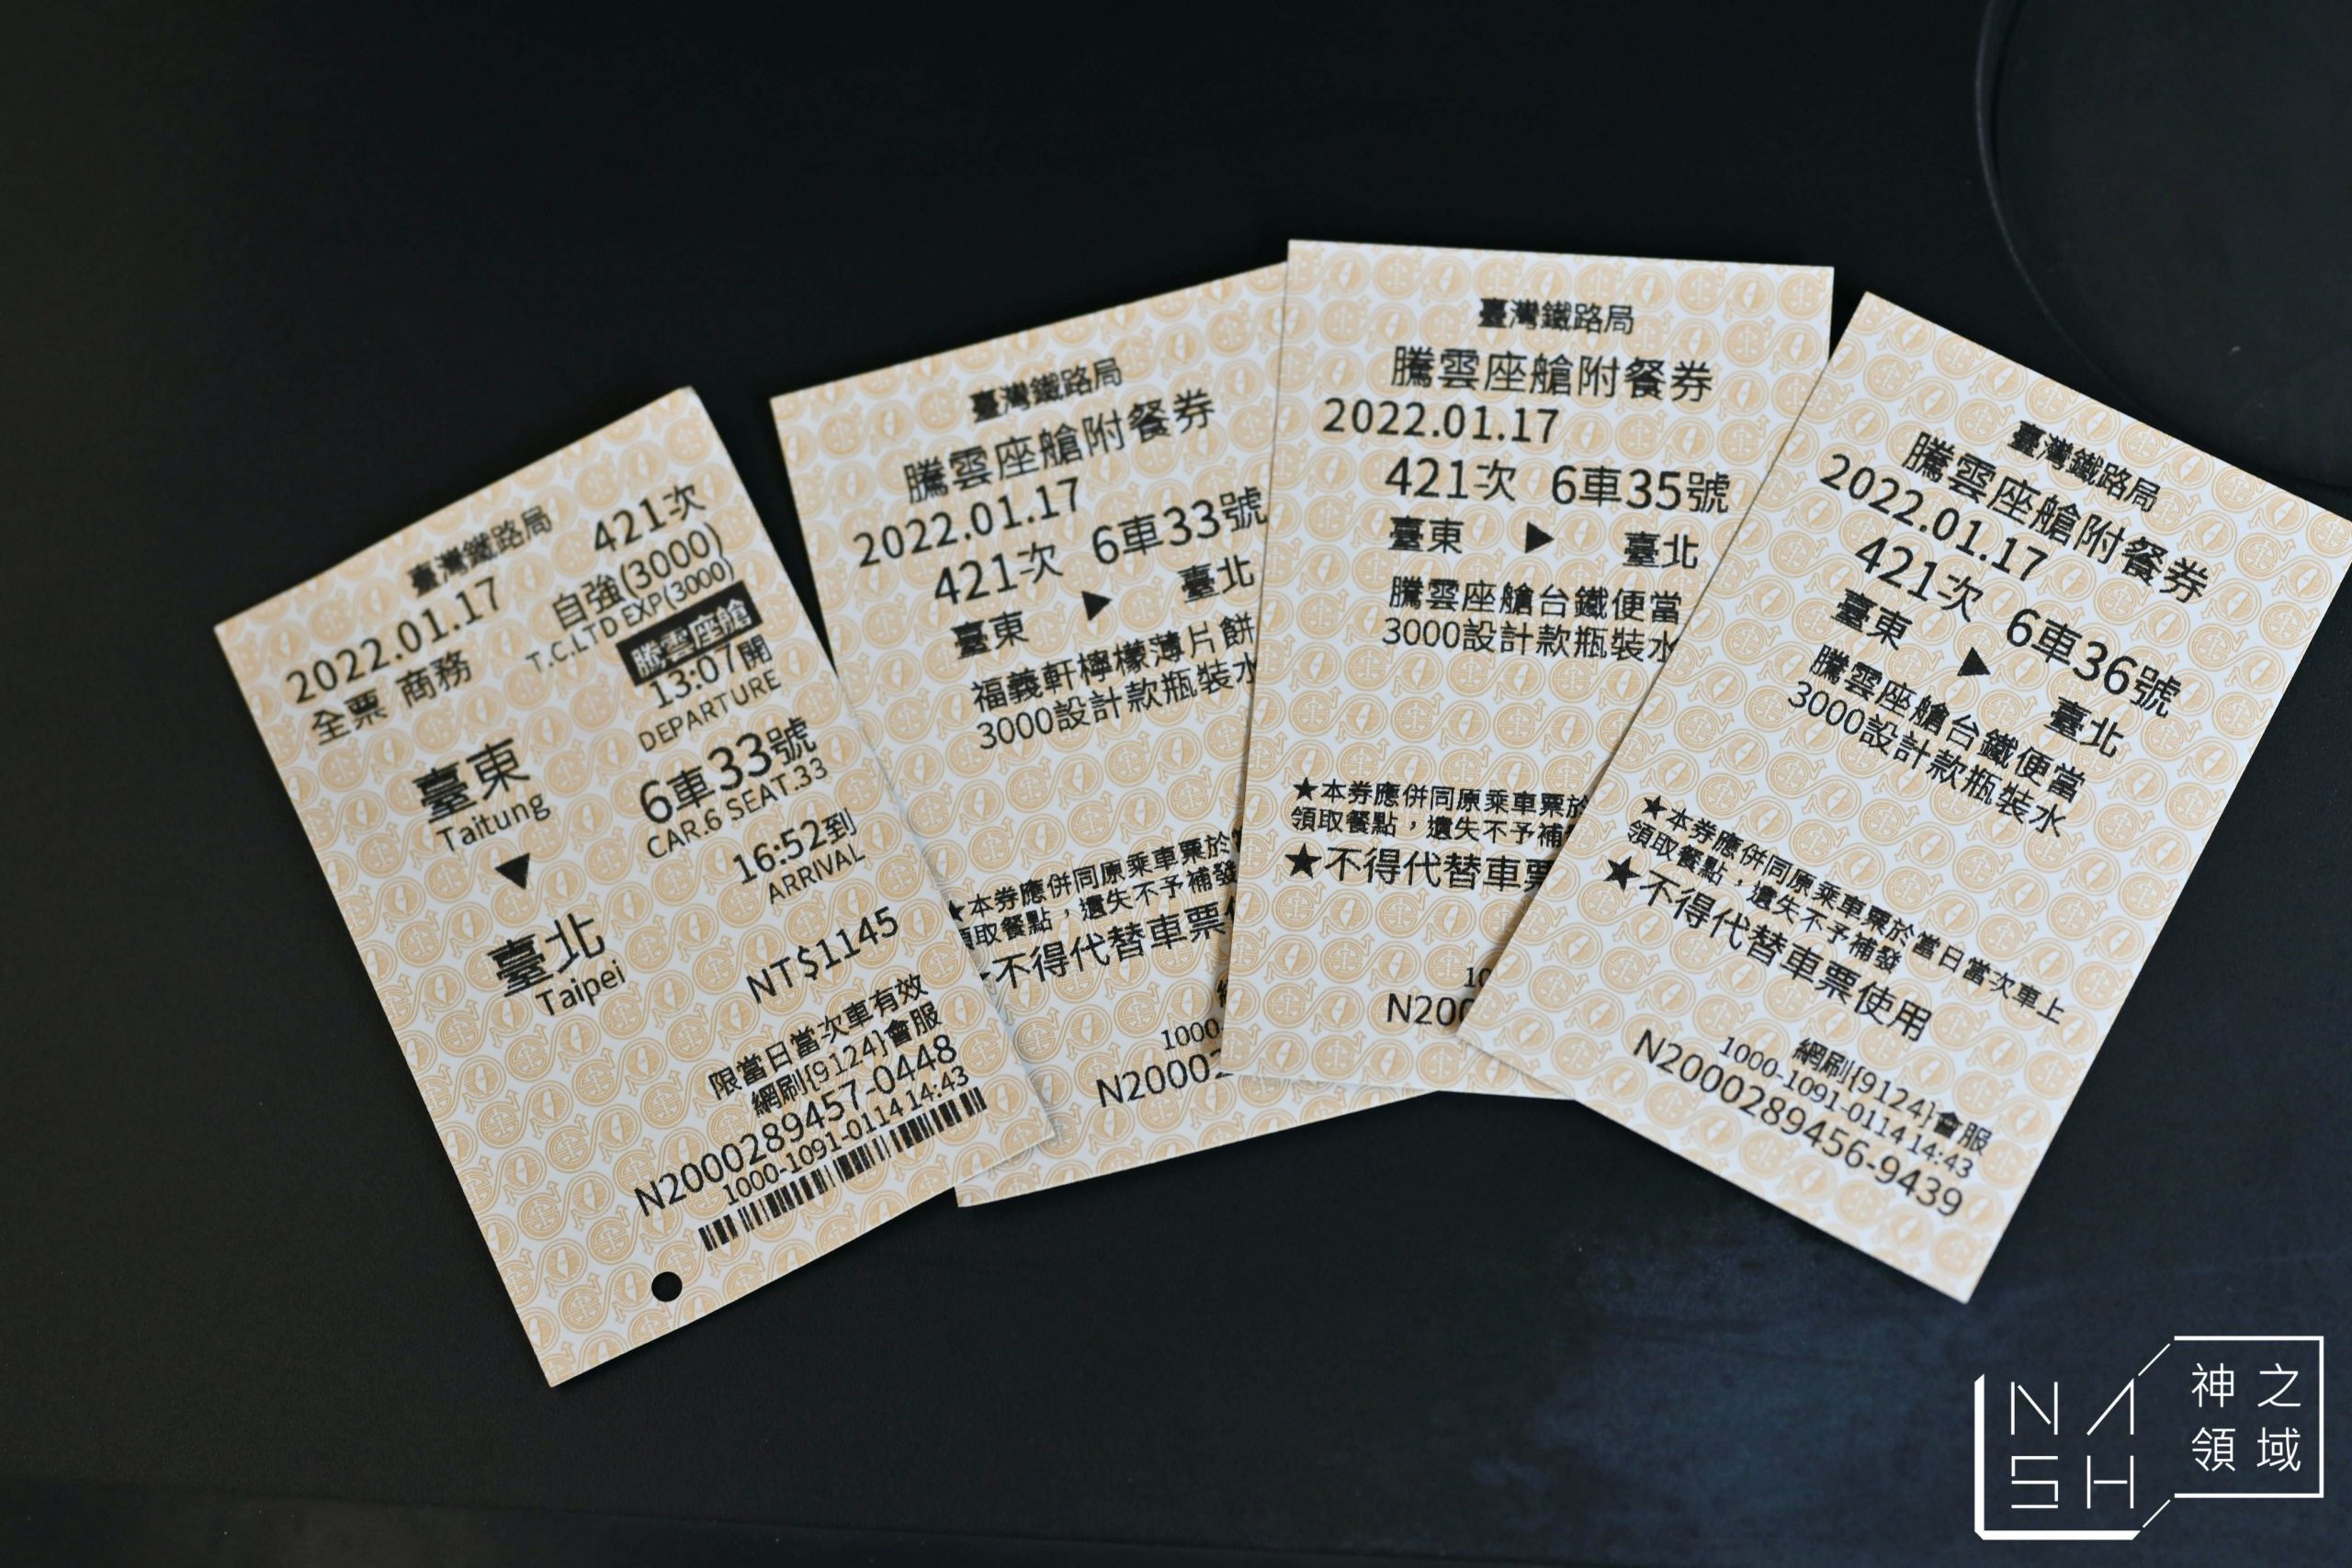 臺灣鐵路局
2022.01.17 421次
全票 商務 自強(3000)
T.C.LTD EXP(3000)
騰雲座艙
13:07開
DEPARTURE
臺東
Taitung
6車33號
CAR.6 SEAT.33
16:52到
ARRIVAL
臺北
Taipei
NT$1145
限當日當次車有效
網刷{9124}會服
N2000289457-0448
1000-1091-0114 14:43
臺灣鐵路局
騰雲座艙附餐券
2022.01.17
421次 6車33號
臺東 ▶ 臺北
福義軒檸檬薄片餅
3000設計款瓶裝水
★本券應併同原乘車票於
領取餐點，遺失不予補發
★不得代替車票
1000-
N20002
臺灣鐵路局
騰雲座艙附餐券
2022.01.17
421次 6車35號
臺東 ▶ 臺北
騰雲座艙台鐵便當
3000設計款瓶裝水
★本券應併同原乘車票於
領取餐點，遺失不予補
★不得代替車票
10
N200
臺灣鐵路局
騰雲座艙附餐券
2022.01.17
421次 6車36號
臺東 ▶ 臺北
騰雲座艙台鐵便當
3000設計款瓶裝水
★本券應併同原乘車票於當日當次車上
領取餐點，遺失不予補發
★不得代替車票使用
網刷{9124}會服
1000-1091-0114 14:43
N2000289456-9439
NASH
神之
領域